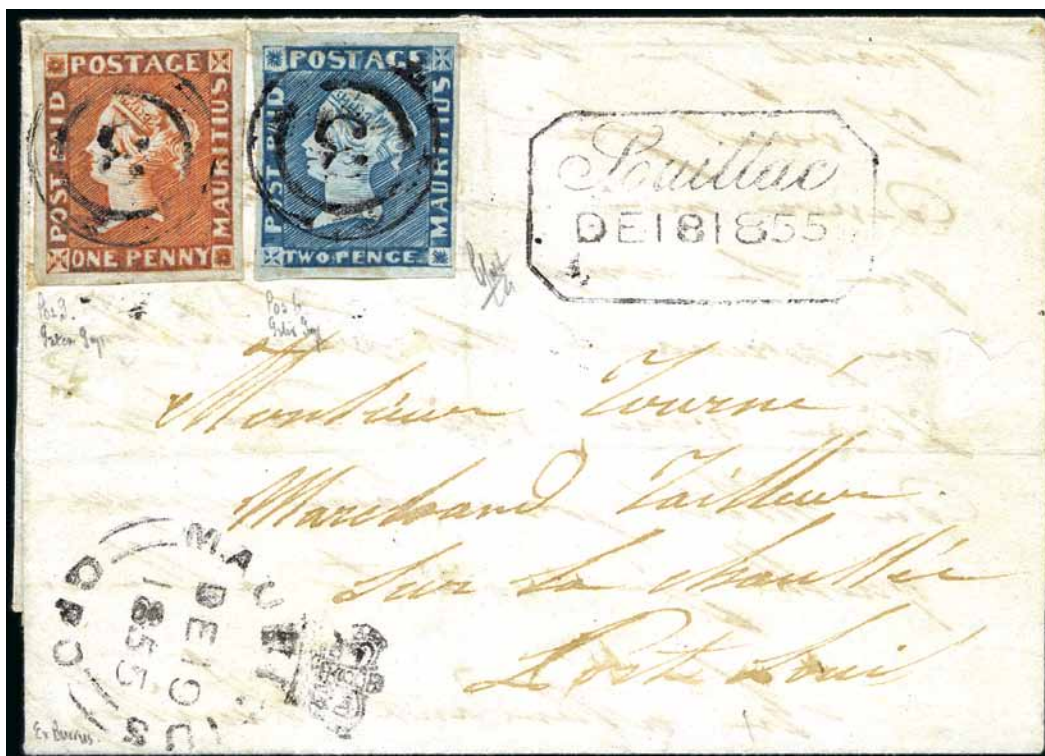 POSTAGE
POST PAID
MAURITIUS
ONE PENNY
3
POSTAGE
POST PAID
MAURITIUS
TWO PENCE
3
Souillac
DE 18 1855
Pos 3.
Pos 6
Monsieur Tourné
Marchand Tailleur
Sur la chaussée
Port Louis
MAURITIUS
DE 19
1855
GPO
Ex Burrus.